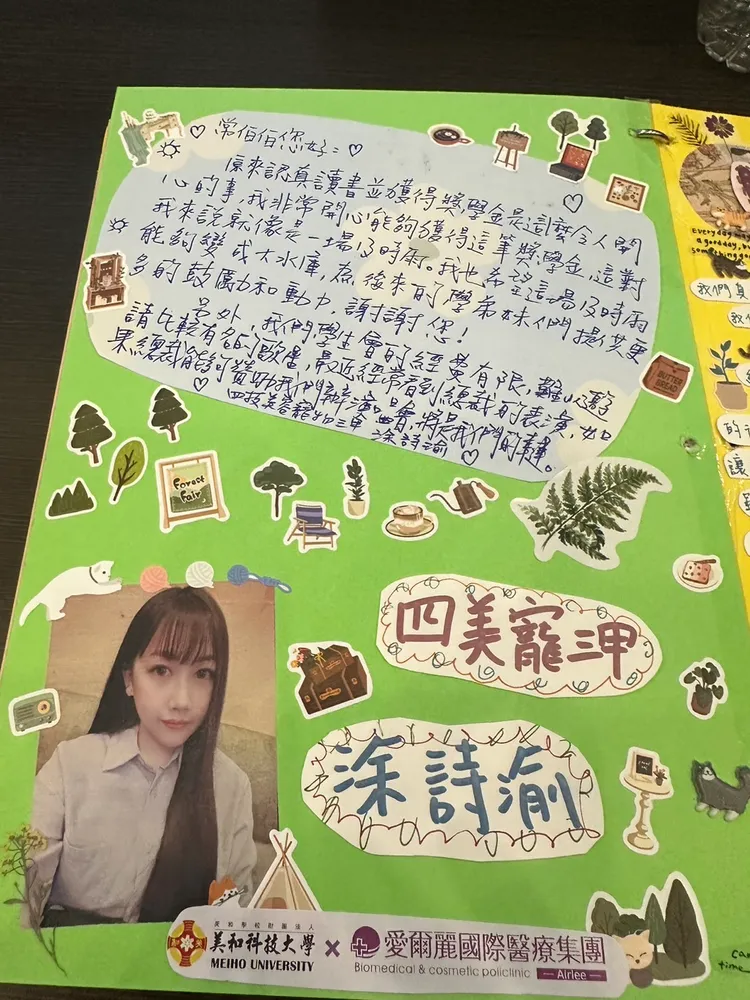 ♡ 常伯伯您好：♡
原來認真讀書並獲得獎學金是這麼令人開
心的事，我非常開心能夠獲得這筆獎學金，這對
我來說就像是一場及時雨。我也希望這場及時雨
能夠變成大水庫，為後來的學弟妹們提供更
多的鼓勵和動力，謝謝您！
另外，我們學生會的經費有限，難以邀
請比較有名的歌星，最近經常看到總裁的表演，如
果總裁能夠贊助我們辦演唱會，將是我們的
四技美容寵物三甲
涂詩渝
BUTTER
BREAD
Forest
Fair
四美寵三甲
涂詩渝
美和學校財團法人
美和科技大學
MEIHO UNIVERSITY
×
愛爾麗國際醫療集團
Biomedical & cosmetic policlinic
Airlee
Everyday may
a good day, bu
something good
我們真
我
的
讓
time